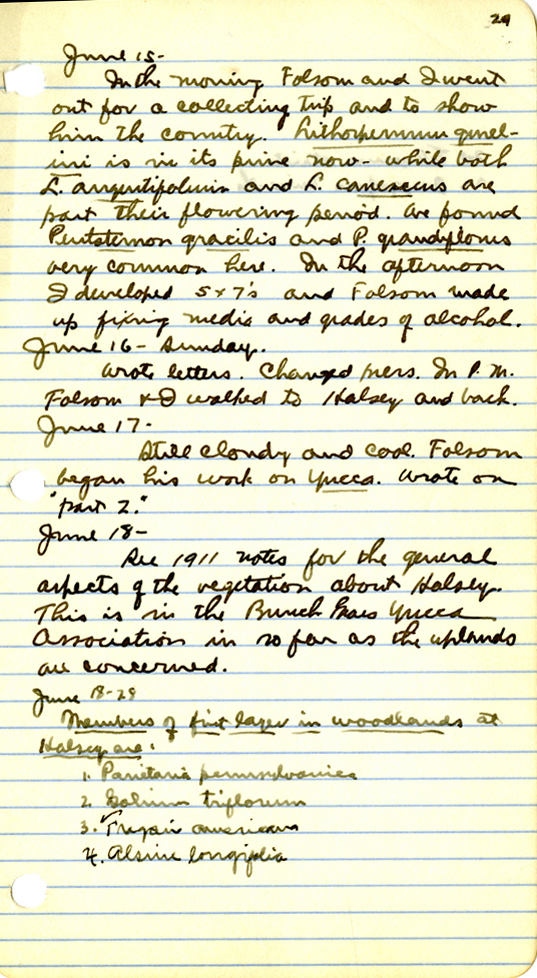 29
June 15-
In the morning Folsom and I went
out for a collecting trip and to show
him the country. Lithospermum gmel-
ini is in its prime now - while both
L. angustifolium and L. canescens are
past their flowering period. We found
Pentstemon gracilis and P. grandiflorus
very common here. In the afternoon
I developed 5x7's and Folsom made
up fixing media and grades of alcohol.
June 16 - Sunday.
Wrote letters. Changed press. In P.M.
Folsom & I walked to Halsey and back.
June 17-
Still cloudy and cool. Folsom
began his work on Yucca. Wrote on
"part 2."
June 18-
See 1911 notes for the general
aspects of the vegetation about Halsey.
This is in the Bunch Grass Yucca
Association in so far as the uplands
are concerned.
June 18-29
Members of first layer in woodlands at
Halsey are:
1. Parietaria pennsylvanica
2. Galium triflorum
3. ✓ americana
4. Alsine longifolia